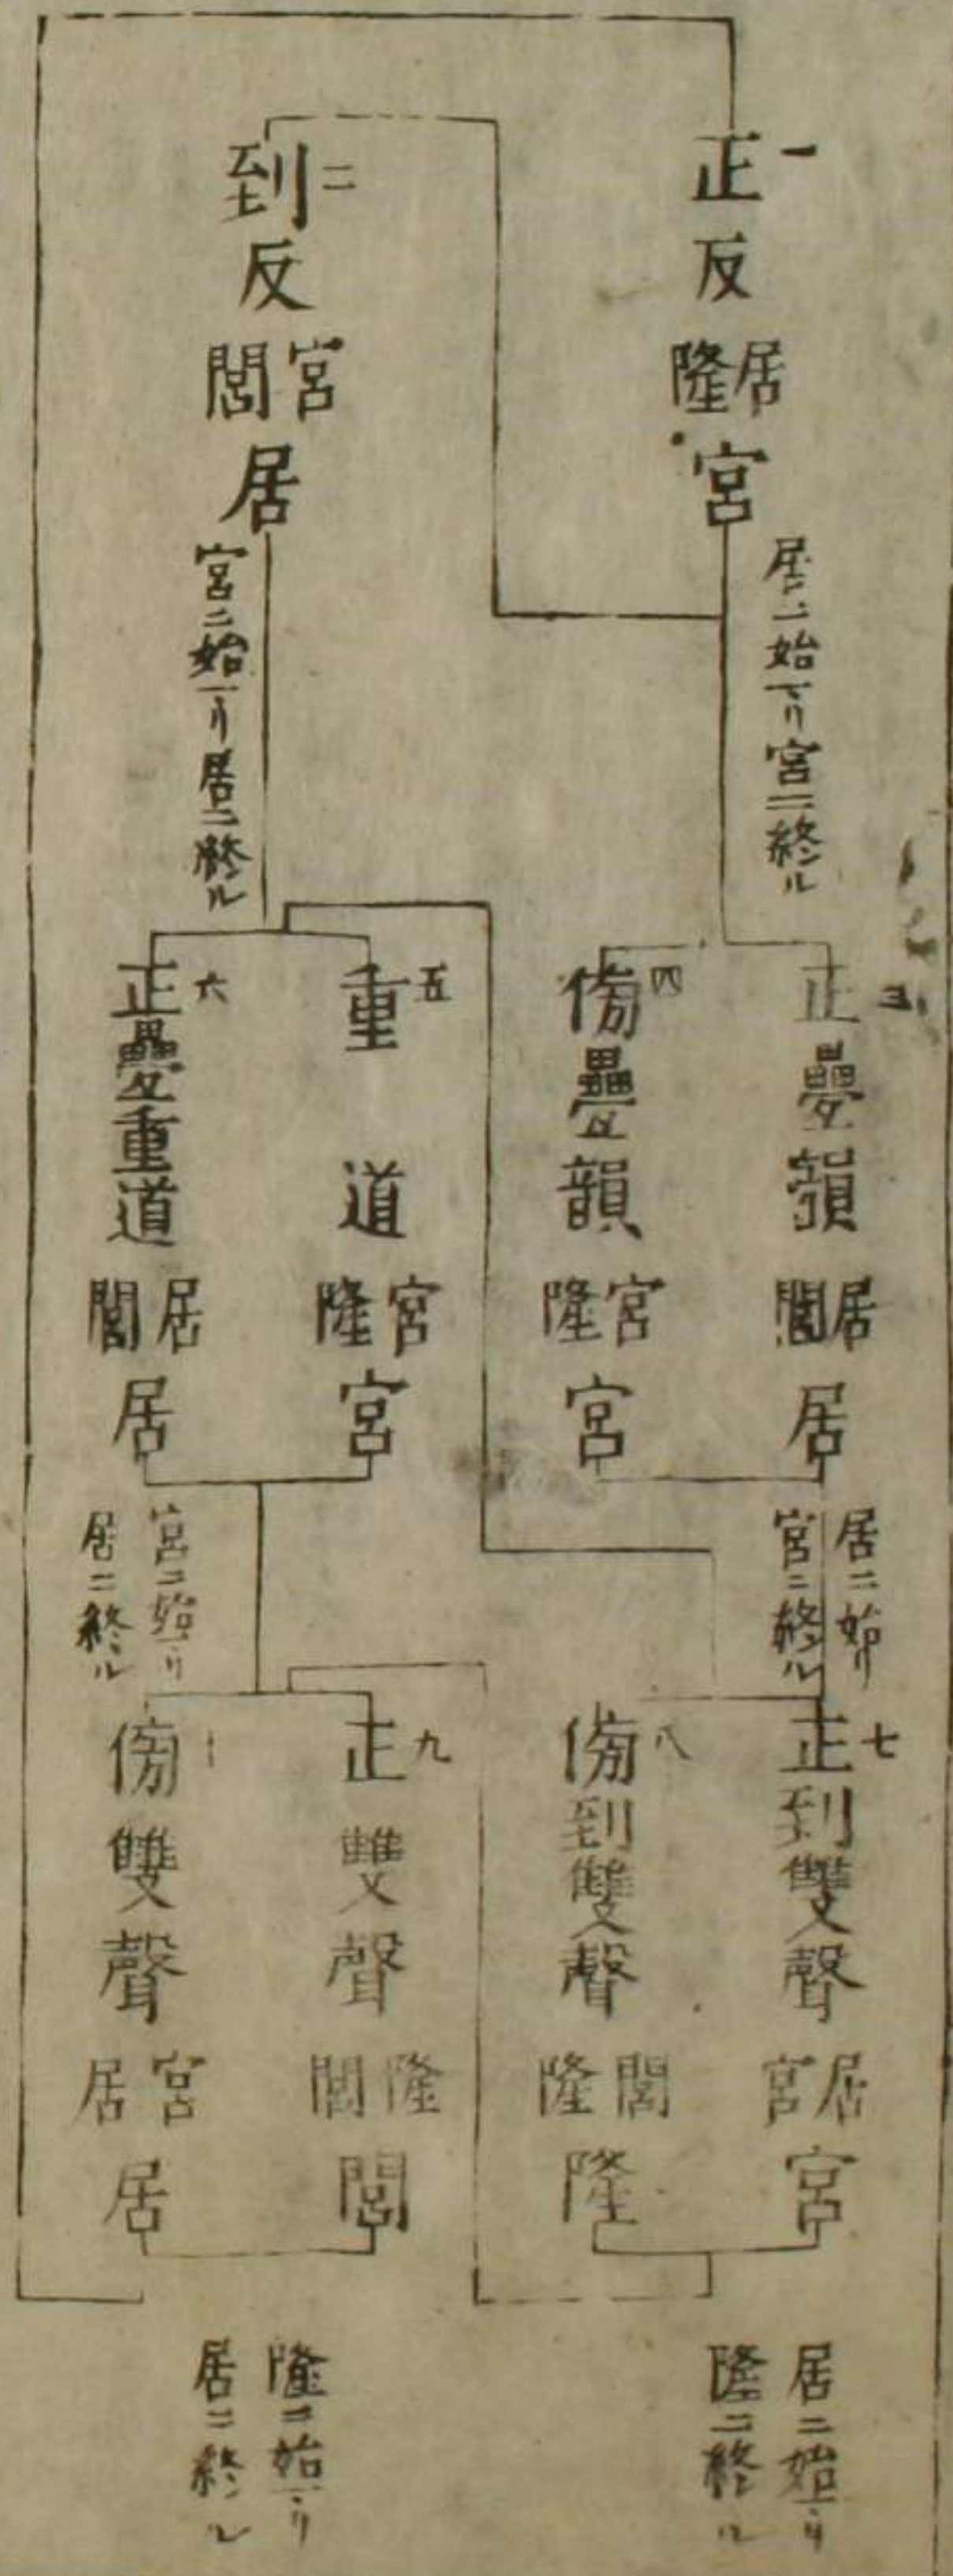 一
正反
居隆
宮
居ニ始マリ宮ニ終ル
二
到反
宮閭
居
宮ニ始マリ居ニ終ル
三
正疊韻
居閭
居
四
傍疊韻
宮隆
宮
居ニ始リ
宮ニ終ル
五
重道
宮隆
宮
六
正疊重道
居閭
居
宮ニ始マリ
居ニ終ル
七
正到雙聲
居宮
宮
八
傍到雙聲
閭隆
隆
居ニ始マリ
隆ニ終ル
九
正雙聲
隆閭
閭
傍雙聲
宮居
居
隆ニ始マリ
居ニ終ル